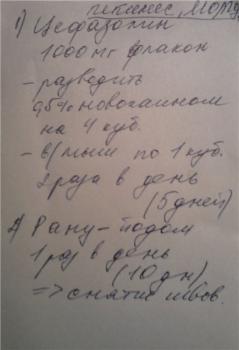 пекинес,
1) Цефазолин
1000 мг флакон
- разводить
0,5% новокаином
на 4 куб.
- в/мыш по 1 куб.
2 раза в день
(5 дней)
2) Рану - йодом
1 раз в день
(10 дн)
=> снятие швов.